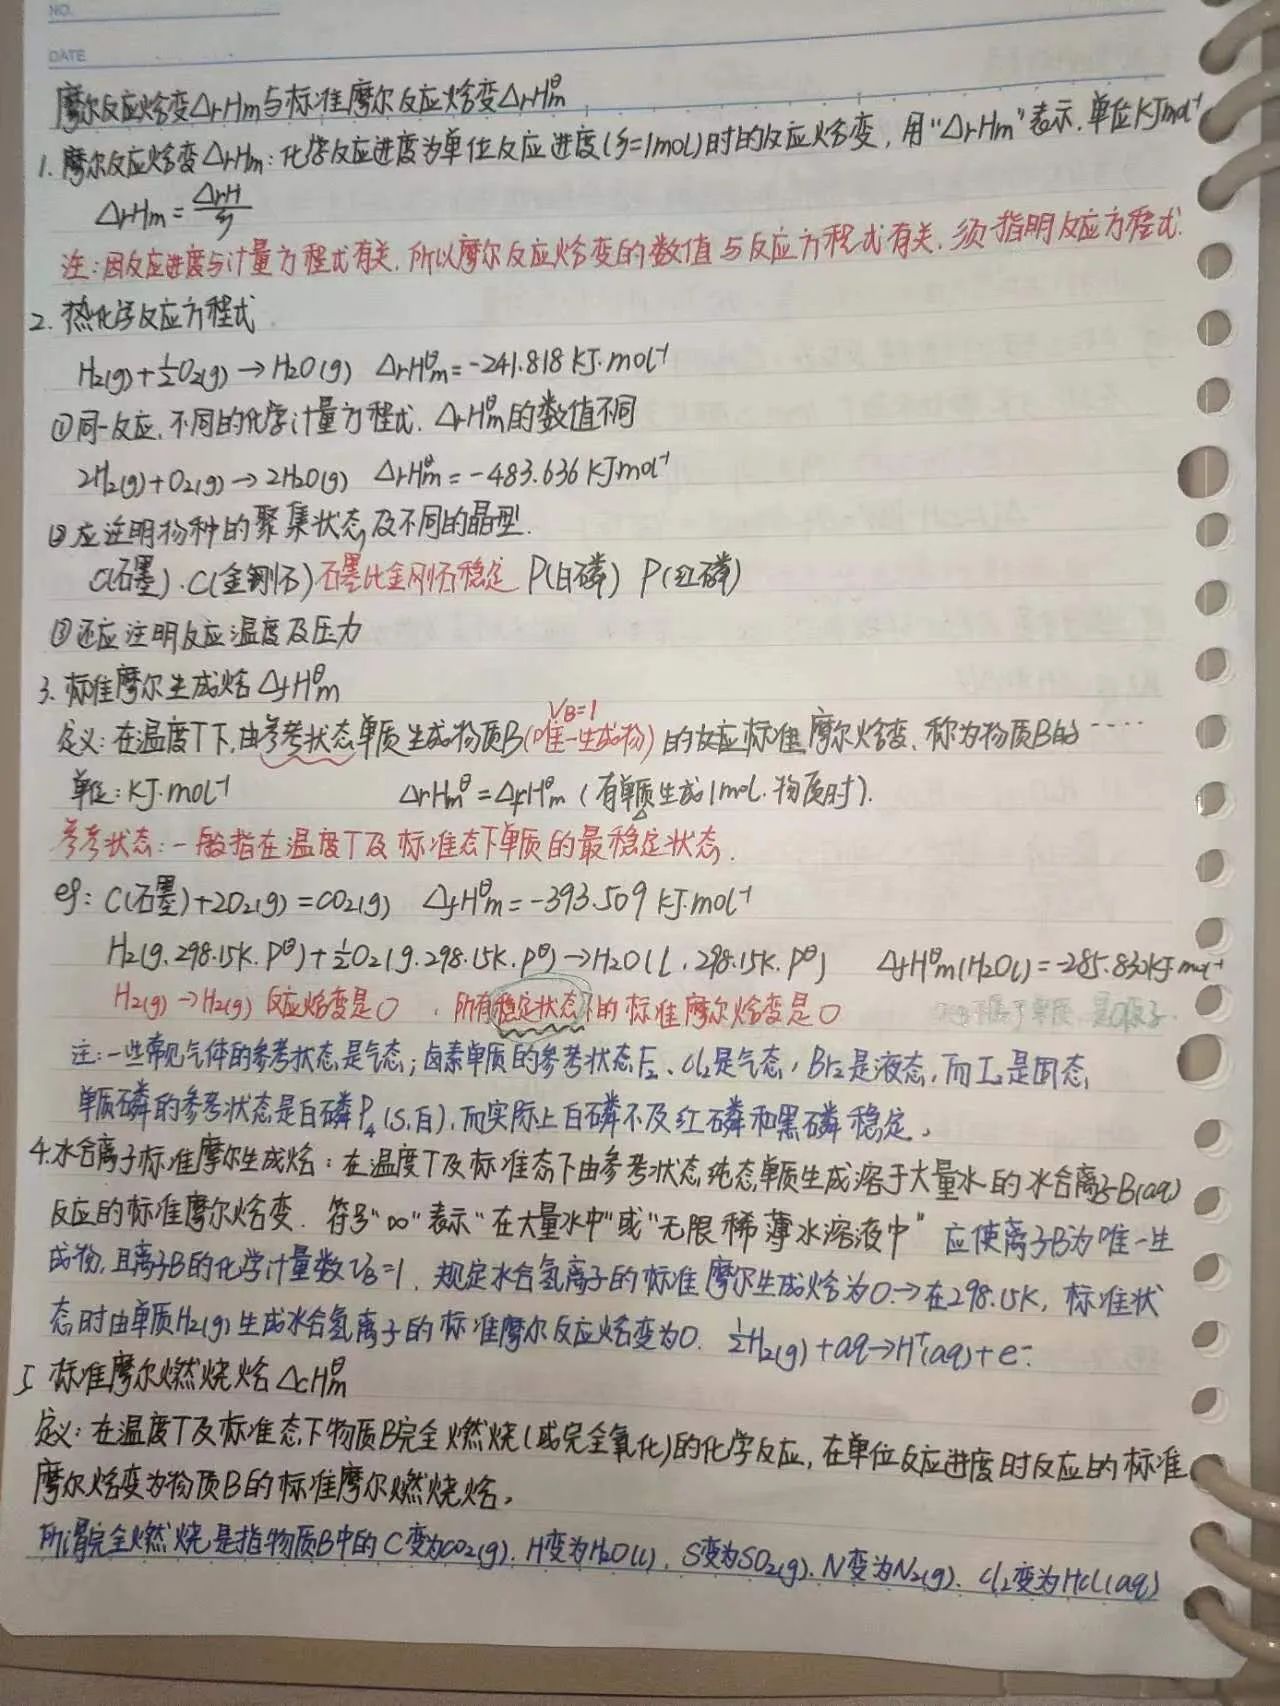 NO.
DATE
摩尔反应焓变ΔrHm与标准摩尔反应焓变ΔrHm^θ
1. 摩尔反应焓变ΔrHm: 化学反应进度为单位反应进度(ξ=1mol)时的反应焓变, 用"ΔrHm"表示. 单位KJ·mol⁻¹
ΔrHm = ΔrH/ξ
注: 因反应进度与计量方程式有关, 所以摩尔反应焓变的数值与反应方程式有关, 须指明反应方程式.
2. 热化学反应方程式.
H₂(g)+½O₂(g)→H₂O(g) ΔrHm^θ=-241.818 KJ·mol⁻¹
①同一反应, 不同的化学计量方程式, ΔrHm^θ的数值不同
2H₂(g)+O₂(g)→2H₂O(g) ΔrHm^θ=-483.636 KJ·mol⁻¹
②应注明物种的聚集状态及不同的晶型.
C(石墨). C(金刚石) 石墨比金刚石稳定 P(白磷) P(红磷)
③还应注明反应温度及压力
3. 标准摩尔生成焓ΔfHm^θ
νB=1
定义: 在温度T下, 由参考状态单质生成物质B(唯一生成物)的反应标准摩尔焓变, 称为物质B的····
单位: KJ·mol⁻¹ ΔrHm^θ=ΔfHm^θ (有单质生成1mol.物质时).
参考状态: 一般指在温度T及标准态下单质的最稳定状态.
eg: C(石墨)+2O₂(g)=CO₂(g) ΔfHm^θ=-393.509 KJ·mol⁻¹
H₂(g. 298.15K. P^θ)+½O₂(g. 298.15K. P^θ)→H₂O(l. 298.15K. P^θ) ΔfHm^θ(H₂O l)=-285.830KJ·mol⁻¹
H₂(g)→H₂(g) 反应焓变是0, 所有稳定状态下的标准摩尔焓变是0
注: 一些常见气体的参考状态是气态; 卤素单质的参考状态F₂、Cl₂是气态, Br₂是液态, 而I₂是固态,
单质磷的参考状态是白磷P₄(S, 白), 而实际上白磷不及红磷和黑磷稳定。
4. 水合离子标准摩尔生成焓: 在温度T及标准态下由参考状态纯态单质生成溶于大量水的水合离子B(aq)
反应的标准摩尔焓变. 符号"∞"表示"在大量水中"或"无限稀薄水溶液中" 应使离子B为唯一生
成物, 且离子B的化学计量数νB=1. 规定水合氢离子的标准摩尔生成焓为0.→在298.15K, 标准状
态时由单质H₂(g)生成水合氢离子的标准摩尔反应焓变为0. ½H₂(g)+aq→H⁺(aq)+e⁻.
5. 标准摩尔燃烧焓ΔcHm^θ
定义: 在温度T及标准态下物质B完全燃烧(或完全氧化)的化学反应, 在单位反应进度时反应的标准
摩尔焓变为物质B的标准摩尔燃烧焓。
所谓完全燃烧是指物质B中的C变为CO₂(g). H变为H₂O(l). S变为SO₂(g). N变为N₂(g). Cl₂变为HCl(aq)